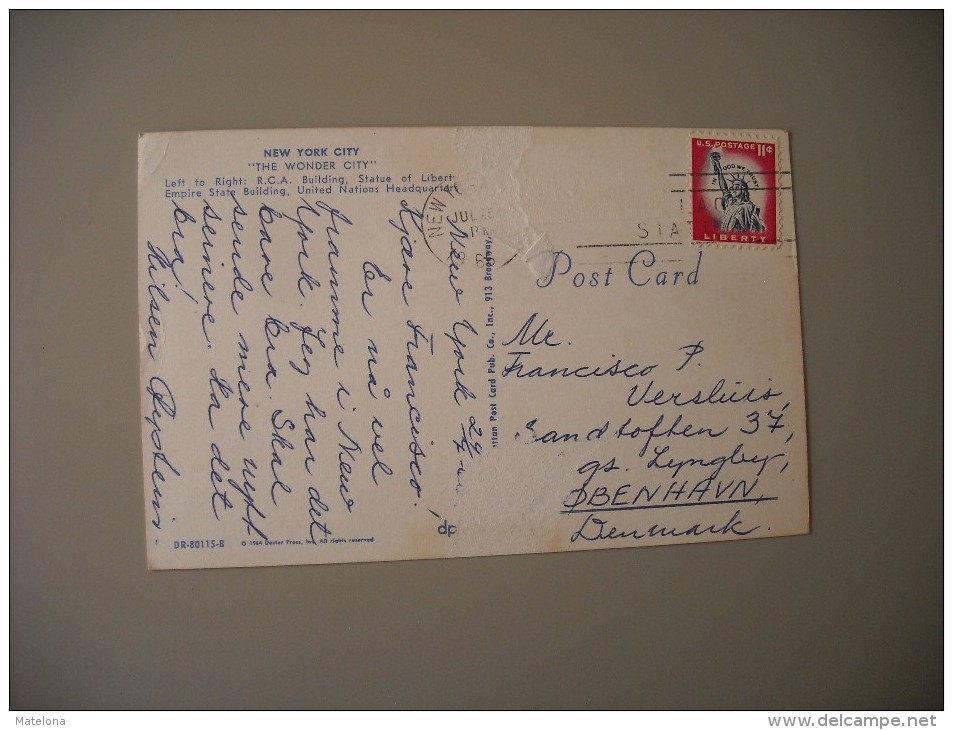 NEW YORK CITY
"THE WONDER CITY"
Left to Right: R.C.A. Building, Statue of Libert
Empire State Building, United Nations Headquart
New York 29/7
Kjære Francisco!
Er nå vel
framme i New
York. Jeg har det
bare bra. Skal
sende mere nytt
seinere. Ha det
bra!
Hilsen Øystein.
DR-80115-B
© 1964 Dexter Press, Inc. All rights reserved
dp
ttan Post Card Pub. Co., Inc., 913 Broadway,
NEW
JUL
U.S. POSTAGE 11¢
IN GOD WE TRUST
LIBERTY
Post Card
Mr.
Francisco P.
Versluis,
Sandtoften 37,
gs. Lyngby,
ØBENHAVN,
Denmark.
Matelona
www.delcampe.net